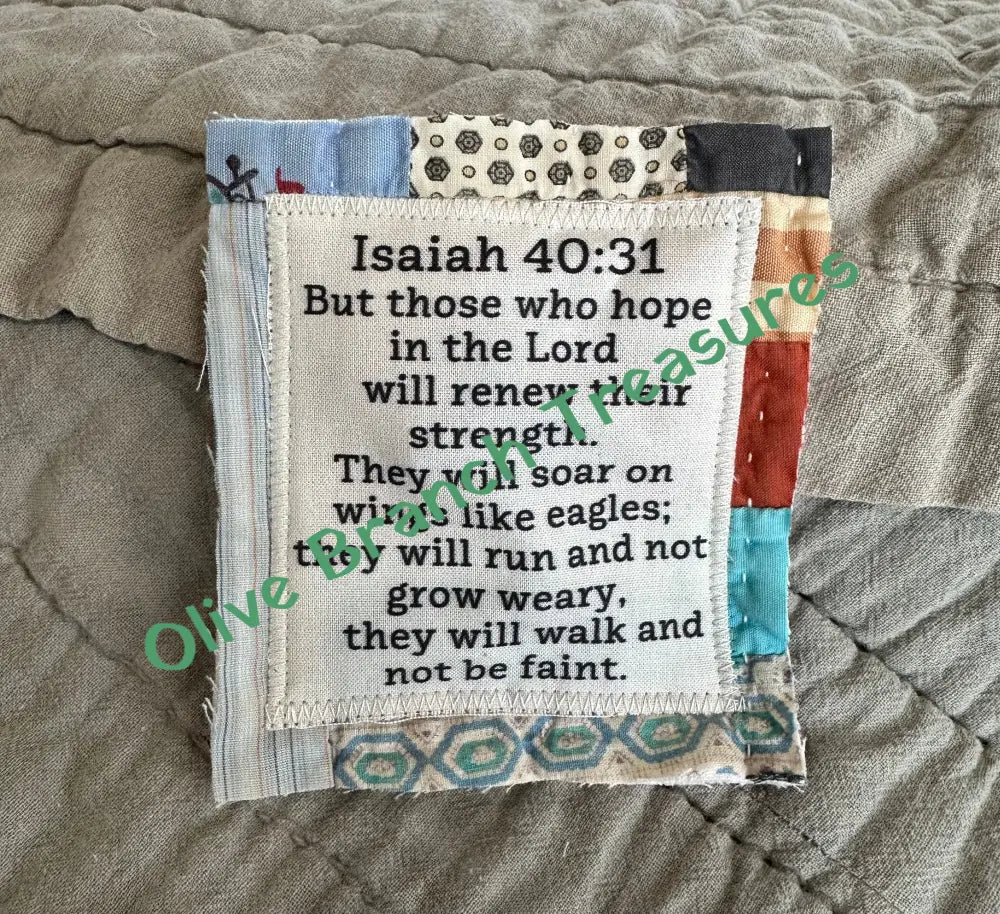 Isaiah 40:31
But those who hope
in the Lord
will renew their
strength.
They will soar on
wings like eagles;
they will run and not
grow weary,
they will walk and
not be faint.
Olive Branch Treasures